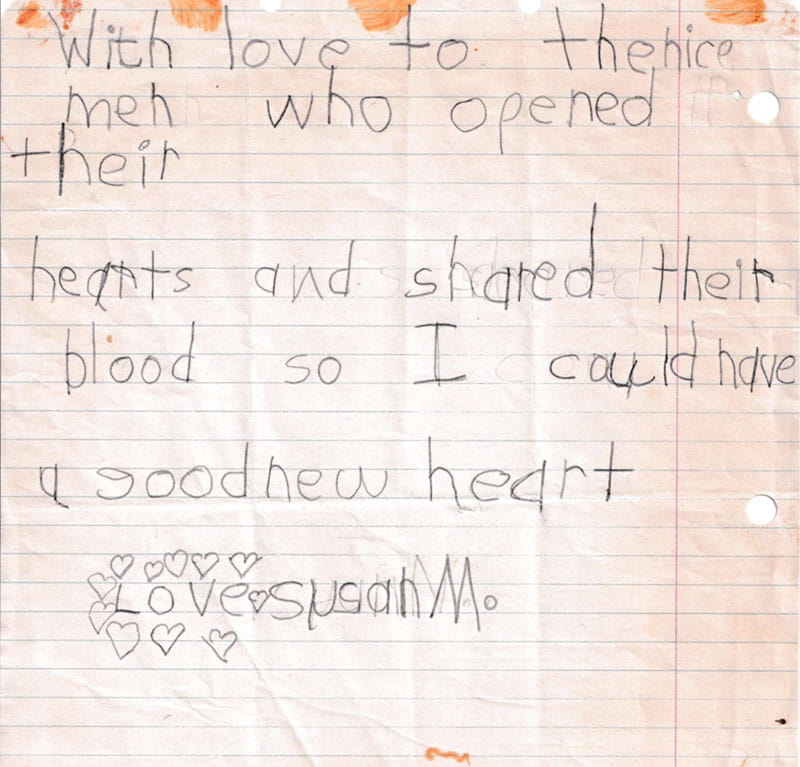 With love to thenice
men who opened
their
hearts and shared their
blood so I could have
a goodnew heart
Love Susan M.